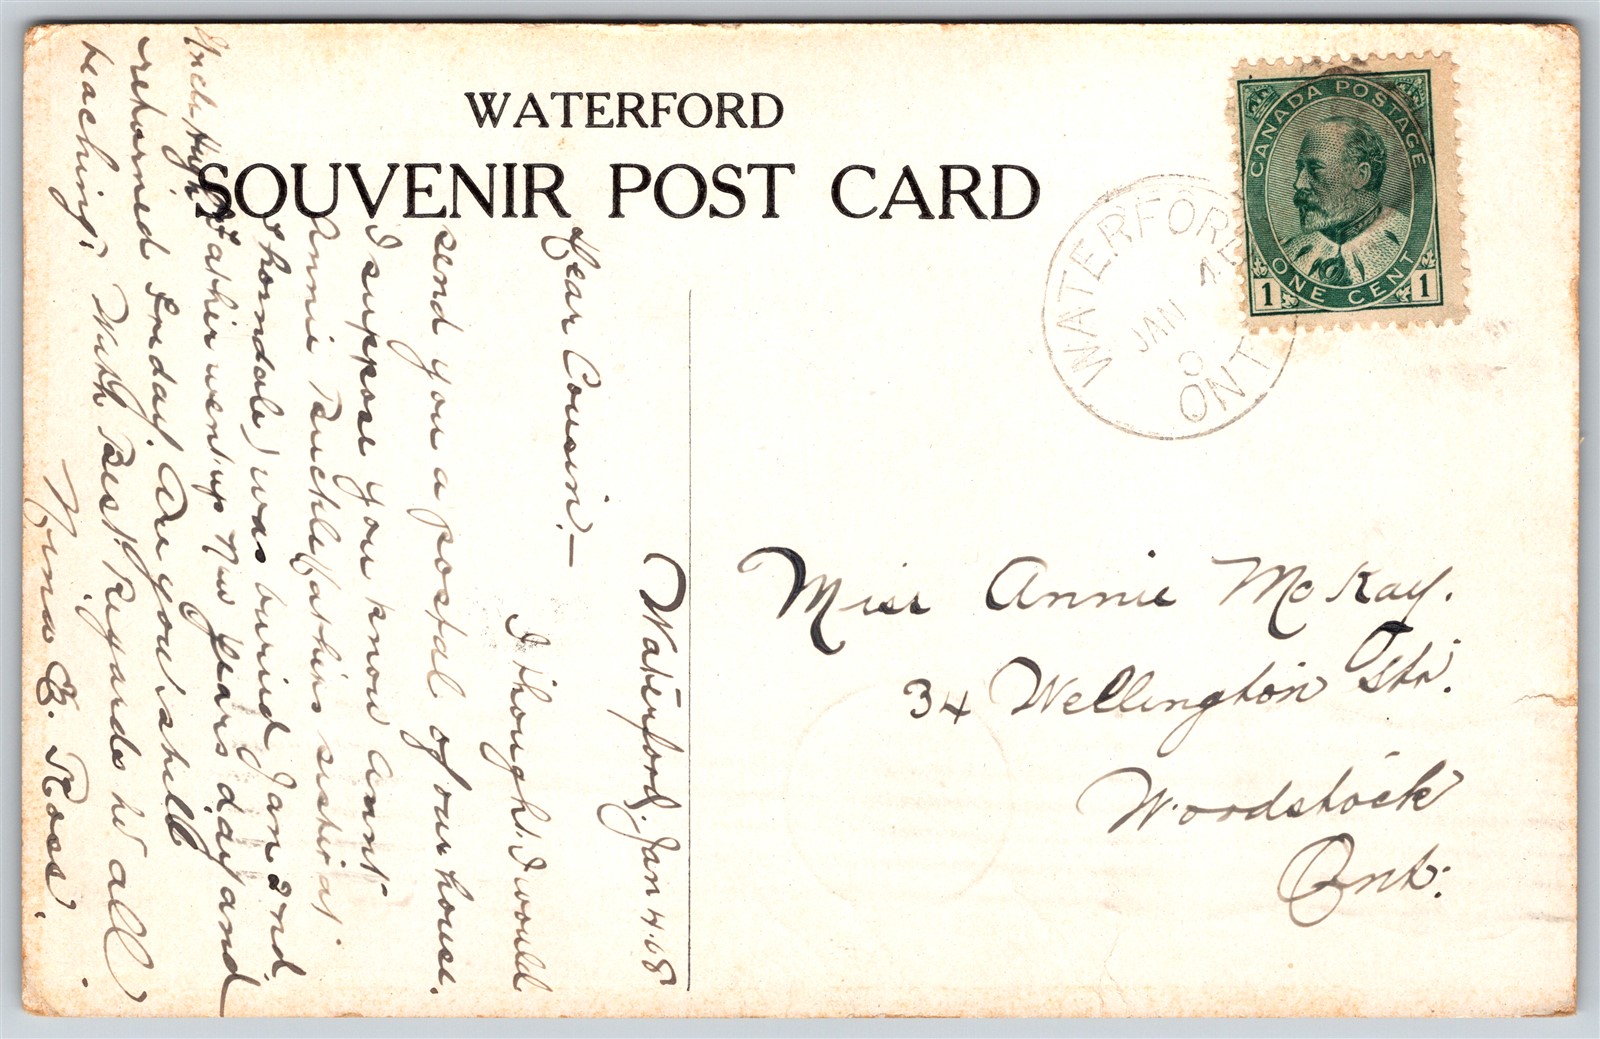 WATERFORD
SOUVENIR POST CARD
CANADA POSTAGE
ONE CENT
1 1
WATERFORD
JAN
8
ONT
Waterford. Jan 4.08
Dear Cousin,—
I thought I would
send you a postal of our house.
I suppose you know Aunt
Annie (father's sister at
Thorndale) was buried Jan 2nd.
Uncle Hugh &
Father went up New Years day and
returned Friday. Are you still
teaching? With Best Regards to all
Nina B. Ross.
Miss Annie McKay.
34 Wellington Str.
Woodstock
Ont.